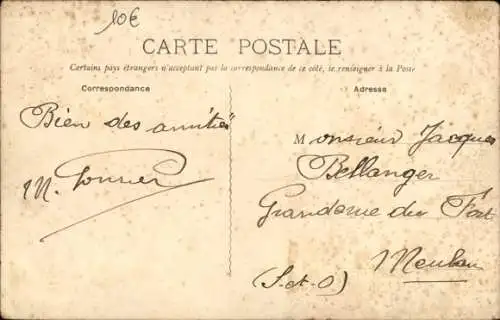 10€
CARTE POSTALE
Certains pays étrangers n'acceptant pas la correspondance de ce côté, se renseigner à la Poste
Correspondance
Adresse
Bien des amitiés
M.
Monsieur Jacques
Bellanger
du Fort
Meulan
(S-et-O)